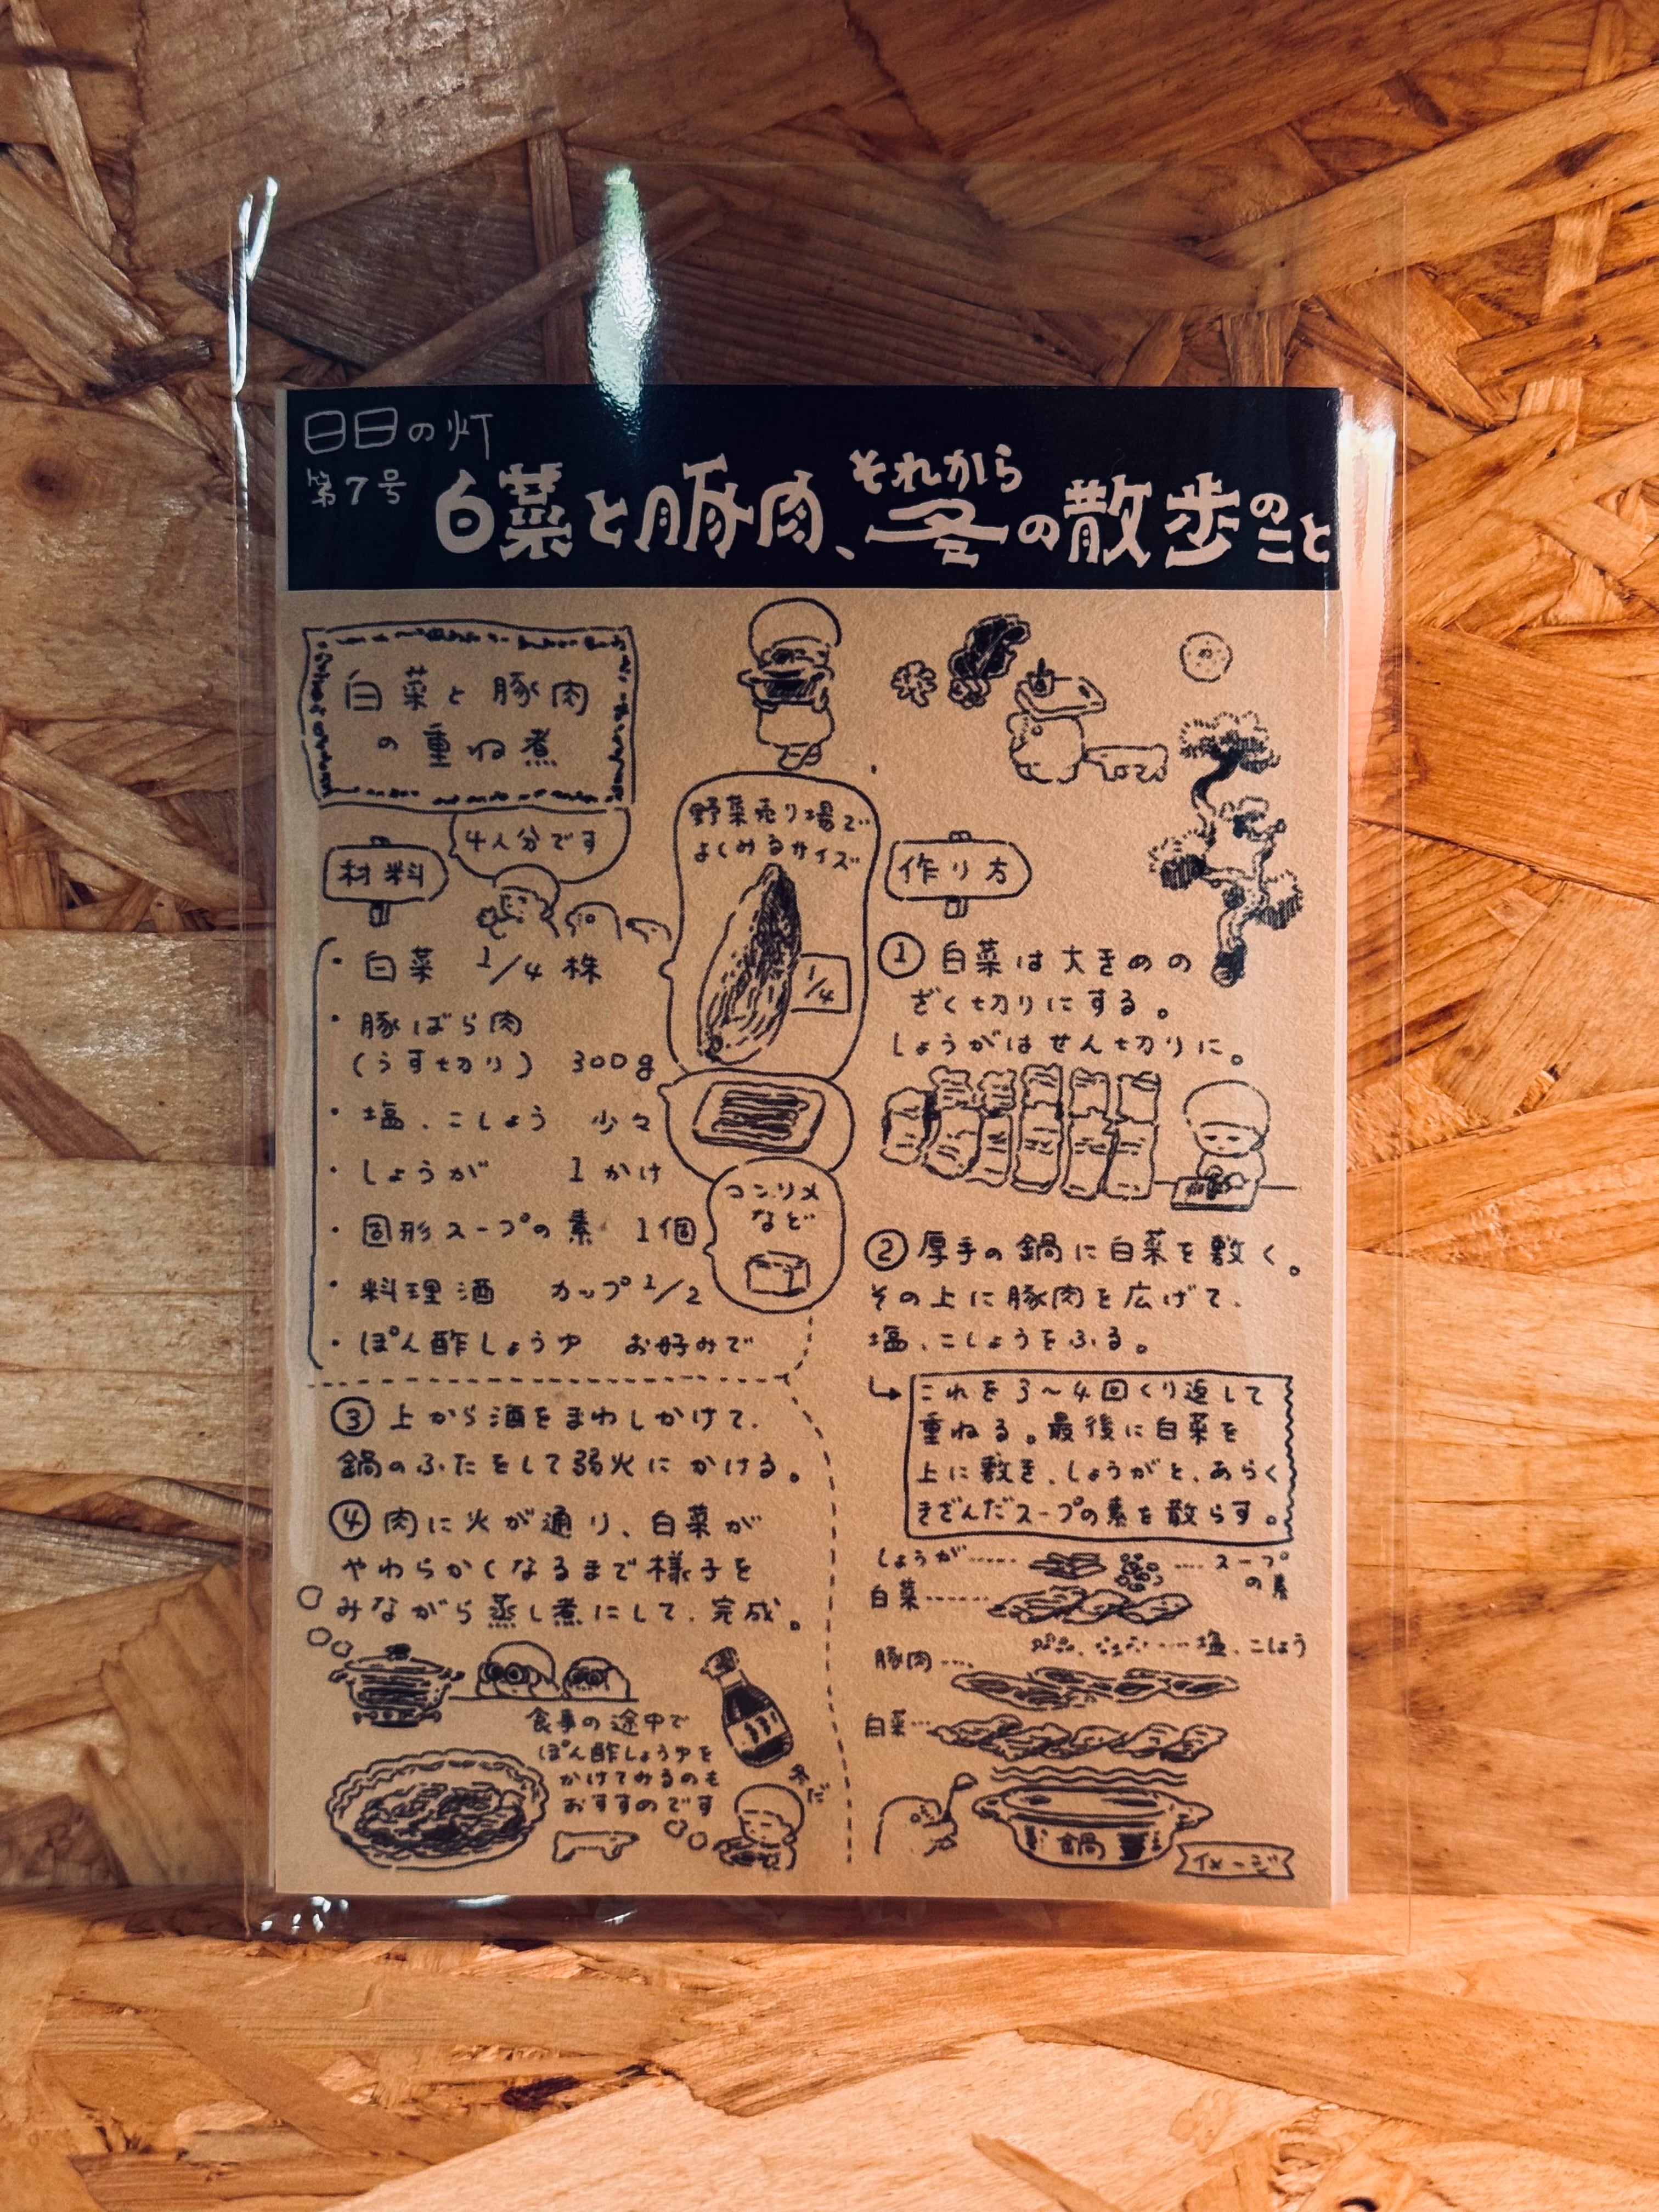 日日の灯
第7号
白菜と豚肉、それから冬の散歩のこと
白菜と豚肉
の重ね煮
4人分です
材料
・白菜 1/4株
・豚ばら肉
(うす切り) 300g
・塩、こしょう 少々
・しょうが 1かけ
・固形スープの素 1個
・料理酒 カップ1/2
・ぽん酢しょうゆ お好みで
野菜売り場で
よくみるサイズ
1/4
コンソメ
など
作り方
①白菜は大きめの
ざく切りにする。
しょうがはせん切りに。
②厚手の鍋に白菜を敷く。
その上に豚肉を広げて、
塩、こしょうをふる。
これを3〜4回くり返して
重ねる。最後に白菜を
上に敷き、しょうがと、あらく
きざんだスープの素を散らす。
しょうが
スープ
の素
白菜
塩、こしょう
豚肉
白菜
鍋
イメージ
③上から酒をまわしかけて、
鍋のふたをして弱火にかける。
④肉に火が通り、白菜が
やわらかくなるまで様子を
みながら蒸し煮にして、完成。
食事の途中で
ぽん酢しょうゆを
かけてみるのも
おすすめです
冬だ